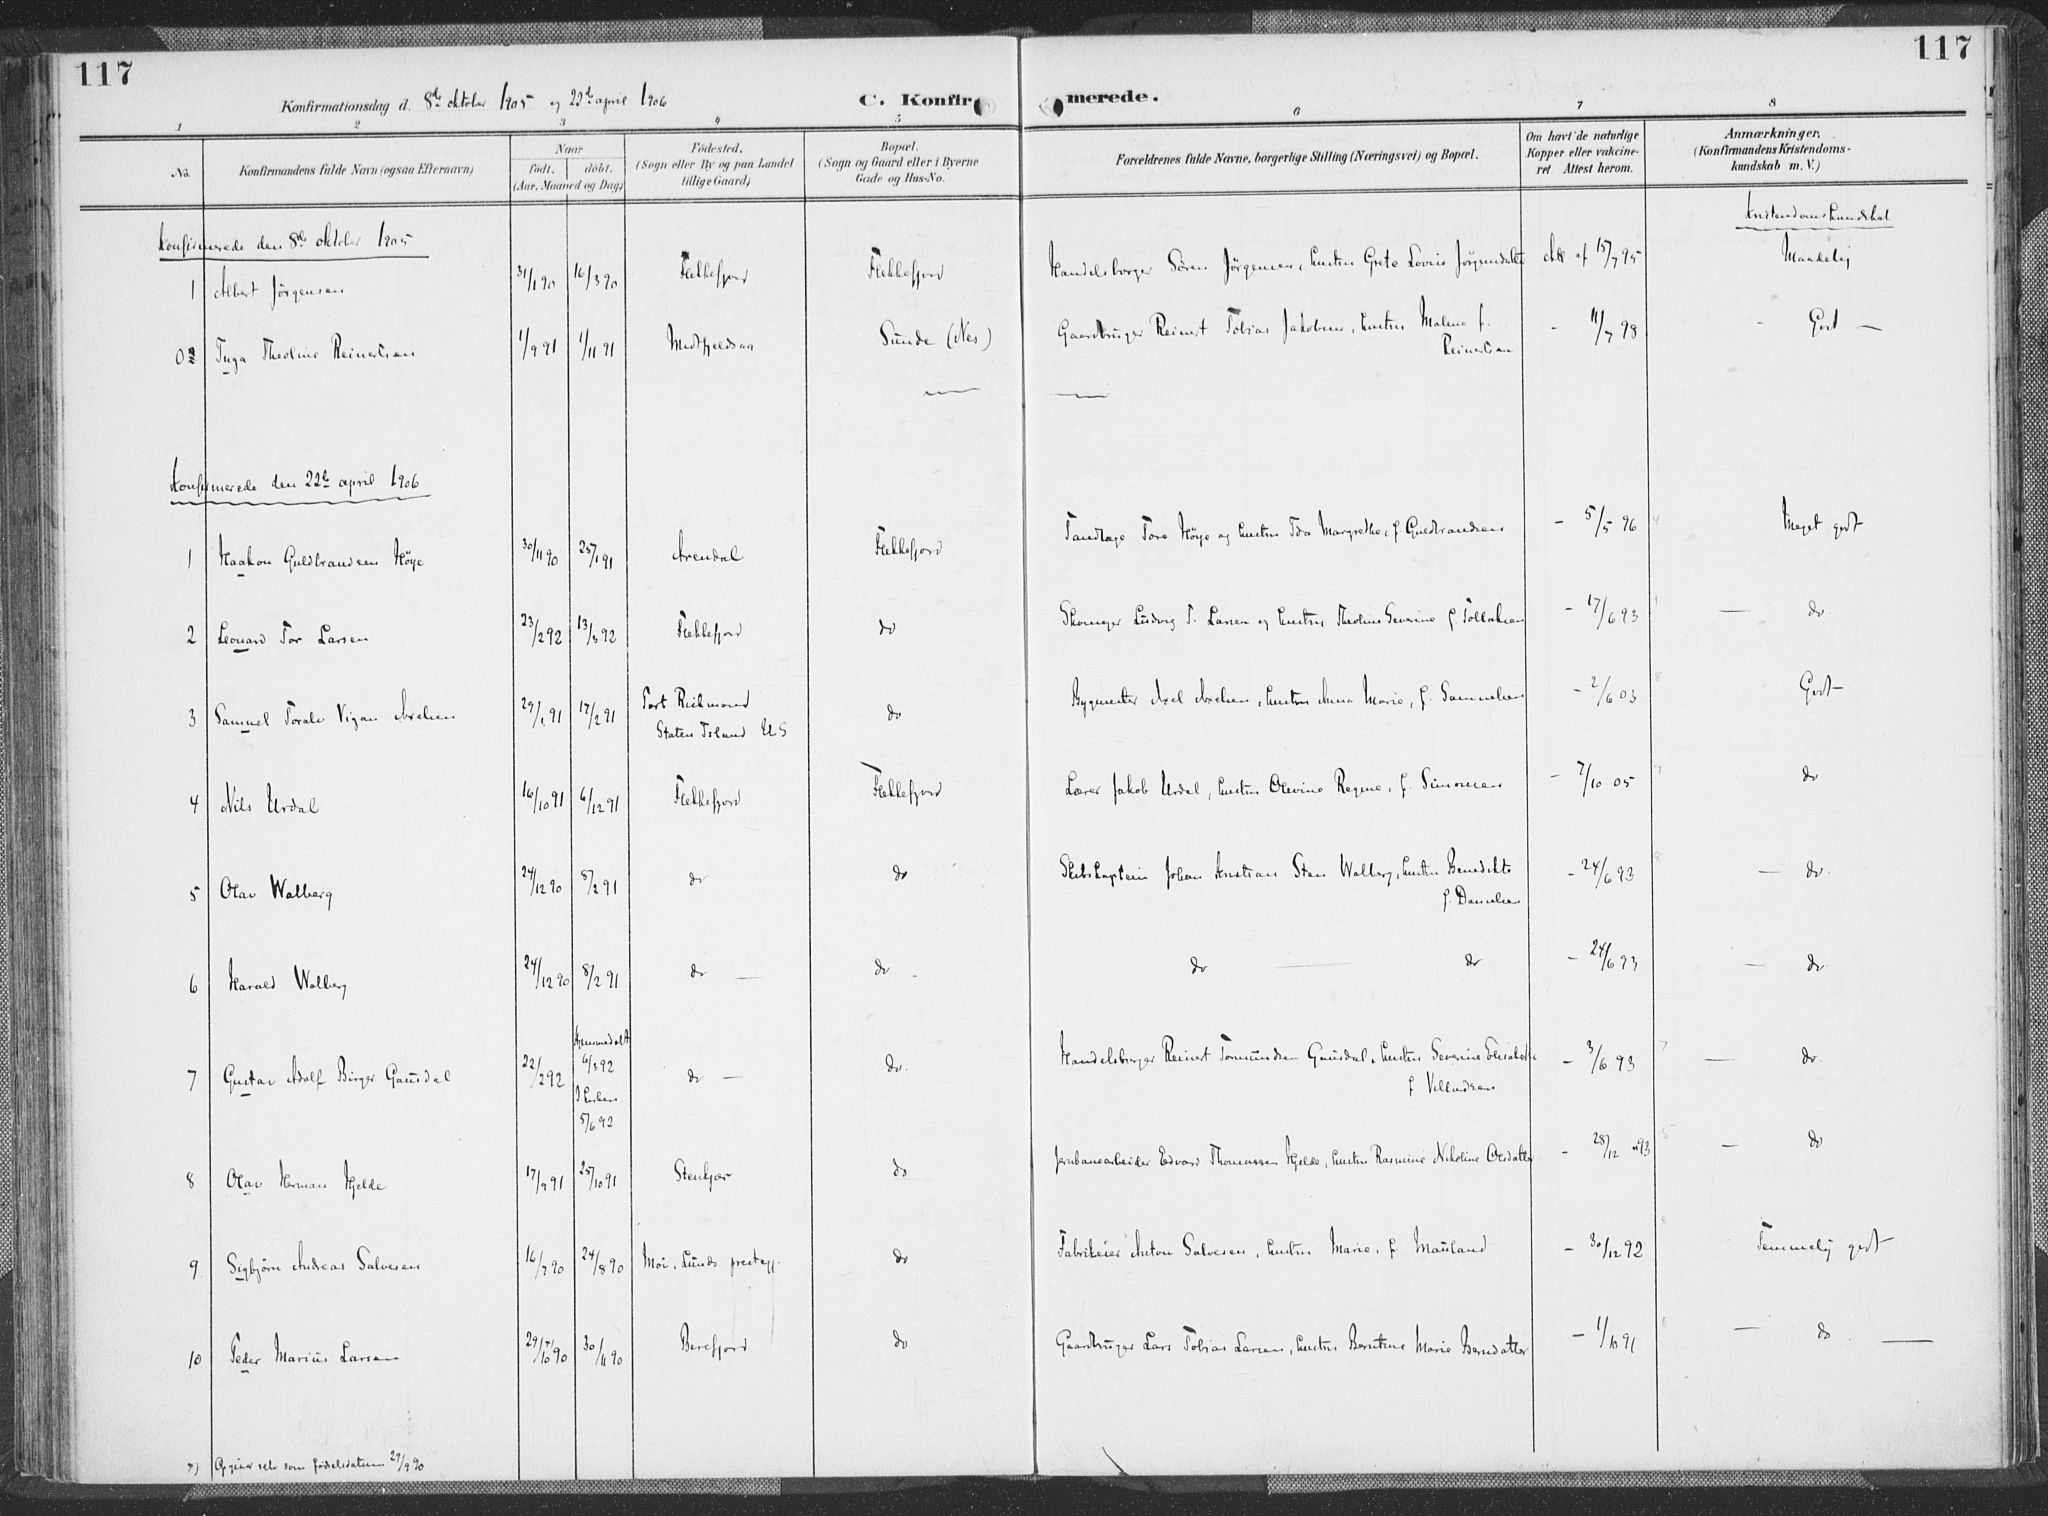 117
117
Konfirmationsdag d. 8de oktober 1905 og 22de april 1906
C. Konfirmerede.
1 2 3 4 5 6 7 8
No.
Konfirmandens fulde Navn (ogsaa Efternavn)
Naar
födt. döbt.
(Aar, Maaned og Dag)
Födested.
(Sogn eller By og paa Landet
tillige Gaard)
Bopæl.
(Sogn og Gaard eller i Byerne
Gade og Hus-No.
Forældrenes fulde Navne, borgerlige Stilling (Næringsvei) og Bopæl.
Om havt de naturlige
Kopper eller vakcine-
ret Attest herom.
Anmærkninger,
(Konfirmandens Kristendoms-
kundskab m. V.)
Kristendomskundskab
Konfirmerede den 8de oktober 1905
1 Albert Jörgensen 31/1 90 16/3 90 Flekkefjord Flekkefjord Handelsborger Sören Jörgensen, hustru Grete Lovise Jörgensdatter Att. af 15/7 95 Maadelig
02 Inga Theoline Reinertsen 1/9 91 1/11 91 Midtfjeldsaa Sunde (Nes) Gaardbruger Reinert Tobias Jakobsen, hustru Malene f.
Reinertsen - 11/7 98 - Godt -
Konfirmerede den 22de april 1906
1 Haakon Guldbrandsen Höye 30/11 90 25/1 91 Arendal Flekkefjord Tandlæge Tore Höye og hustru Ida Margrethe, f. Guldbrandsen - 5/5 96 4 Meget godt
2 Leonard Tor Larsen 23/2 92 13/3 92 Flekkefjord do Skomager Ludvig T. Larsen og hustru Theoline Severine f. Tollaksen - 17/6 93 1 - do.
3 Samuel Toralv Vigan Axelsen 29/1 91 17/2 91 Port Richmond
Staten Island U S do Bygmester Axel Axelsen, hustru Anna Marie, f. Samuelsen - 2/6 03 8 Godt -
4 Nils Urdal 16/10 91 6/12 91 Flekkefjord Flekkefjord Lærer Jakob Urdal, hustru Olevine Regine, f. Simonsen - 7/10 05 7 do
5 Olav Walberg 24/12 90 8/2 91 do do Skibskaptein Johan Kristian Sten Walberg, hustru Benedikte
f. Danielsen - 24/6 93 8 - do.
6 Harald Walberg 24/12 90 8/2 91 do - do - do - do - 24/6 93 - do.
7 Gustav Adolf Birger Gausdal 22/2 92 hjemmedöbt
6/3 92
I kirken
5/6 92 do - do. Handelsborger Reinert Tormundsen Gausdal, hustru Severine Elisabeth
f. Villadsen - 3/6 93 7 - do.
8 Olav Herman Hjelde 17/9 91 25/10 91 Stenkjær do Jernbanearbeider Edvard Thomassen Hjelde, hustru Rasmine Nikoline Olsdatter - 28/12 93 5 - do
9. Sigbjörn Andreas Salvesen 16/7 90 24/8 90 Moi, Lunds prestegj. do Fabrikeier Anton Salvesen, hustru Marie, f. Mauland - 30/12 92 8 Temmelig godt
10 Peder Marius Larsen 29/10 90 30/11 90 Berefjord do Gaardbruger Lars Tobias Larsen, hustru Berntine Marie Berndatter - 1/10 91 8 - do. -
*) Opgiver selv som födselsdatum 29/9 90